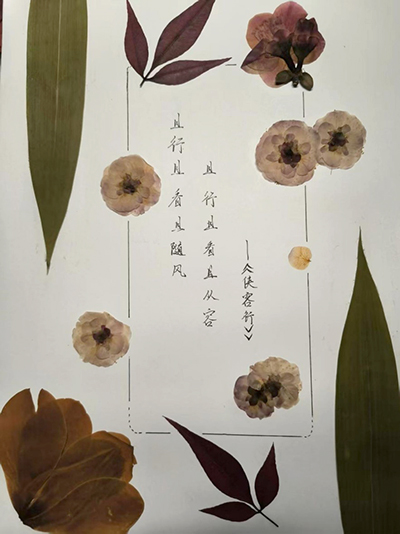 且行且看且随风
且行且看且从容
—《侠客行》